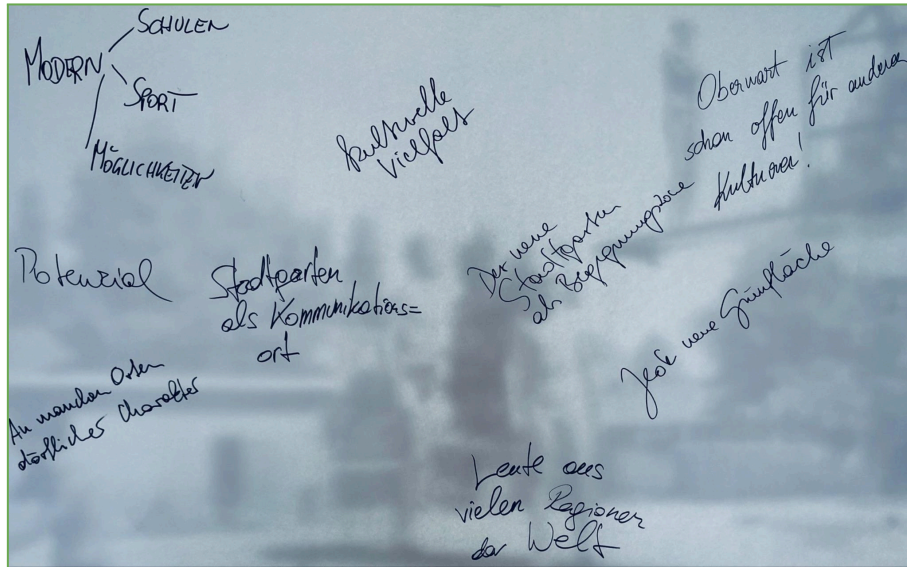 MODERN
SCHULEN
SPORT
MÖGLICHKEITEN
kulturelle
Vielfalt
Oberwart ist
schon offen für anderen
Kulturen!
Der neue
Stadtgarten
als Begegnungszone
Potenzial
Stadtgarten
als Kommunikations=
ort
Jede neue Grünfläche
An manchen Orten
dörflicher Charakter
Leute aus
vielen Regionen
der Welt